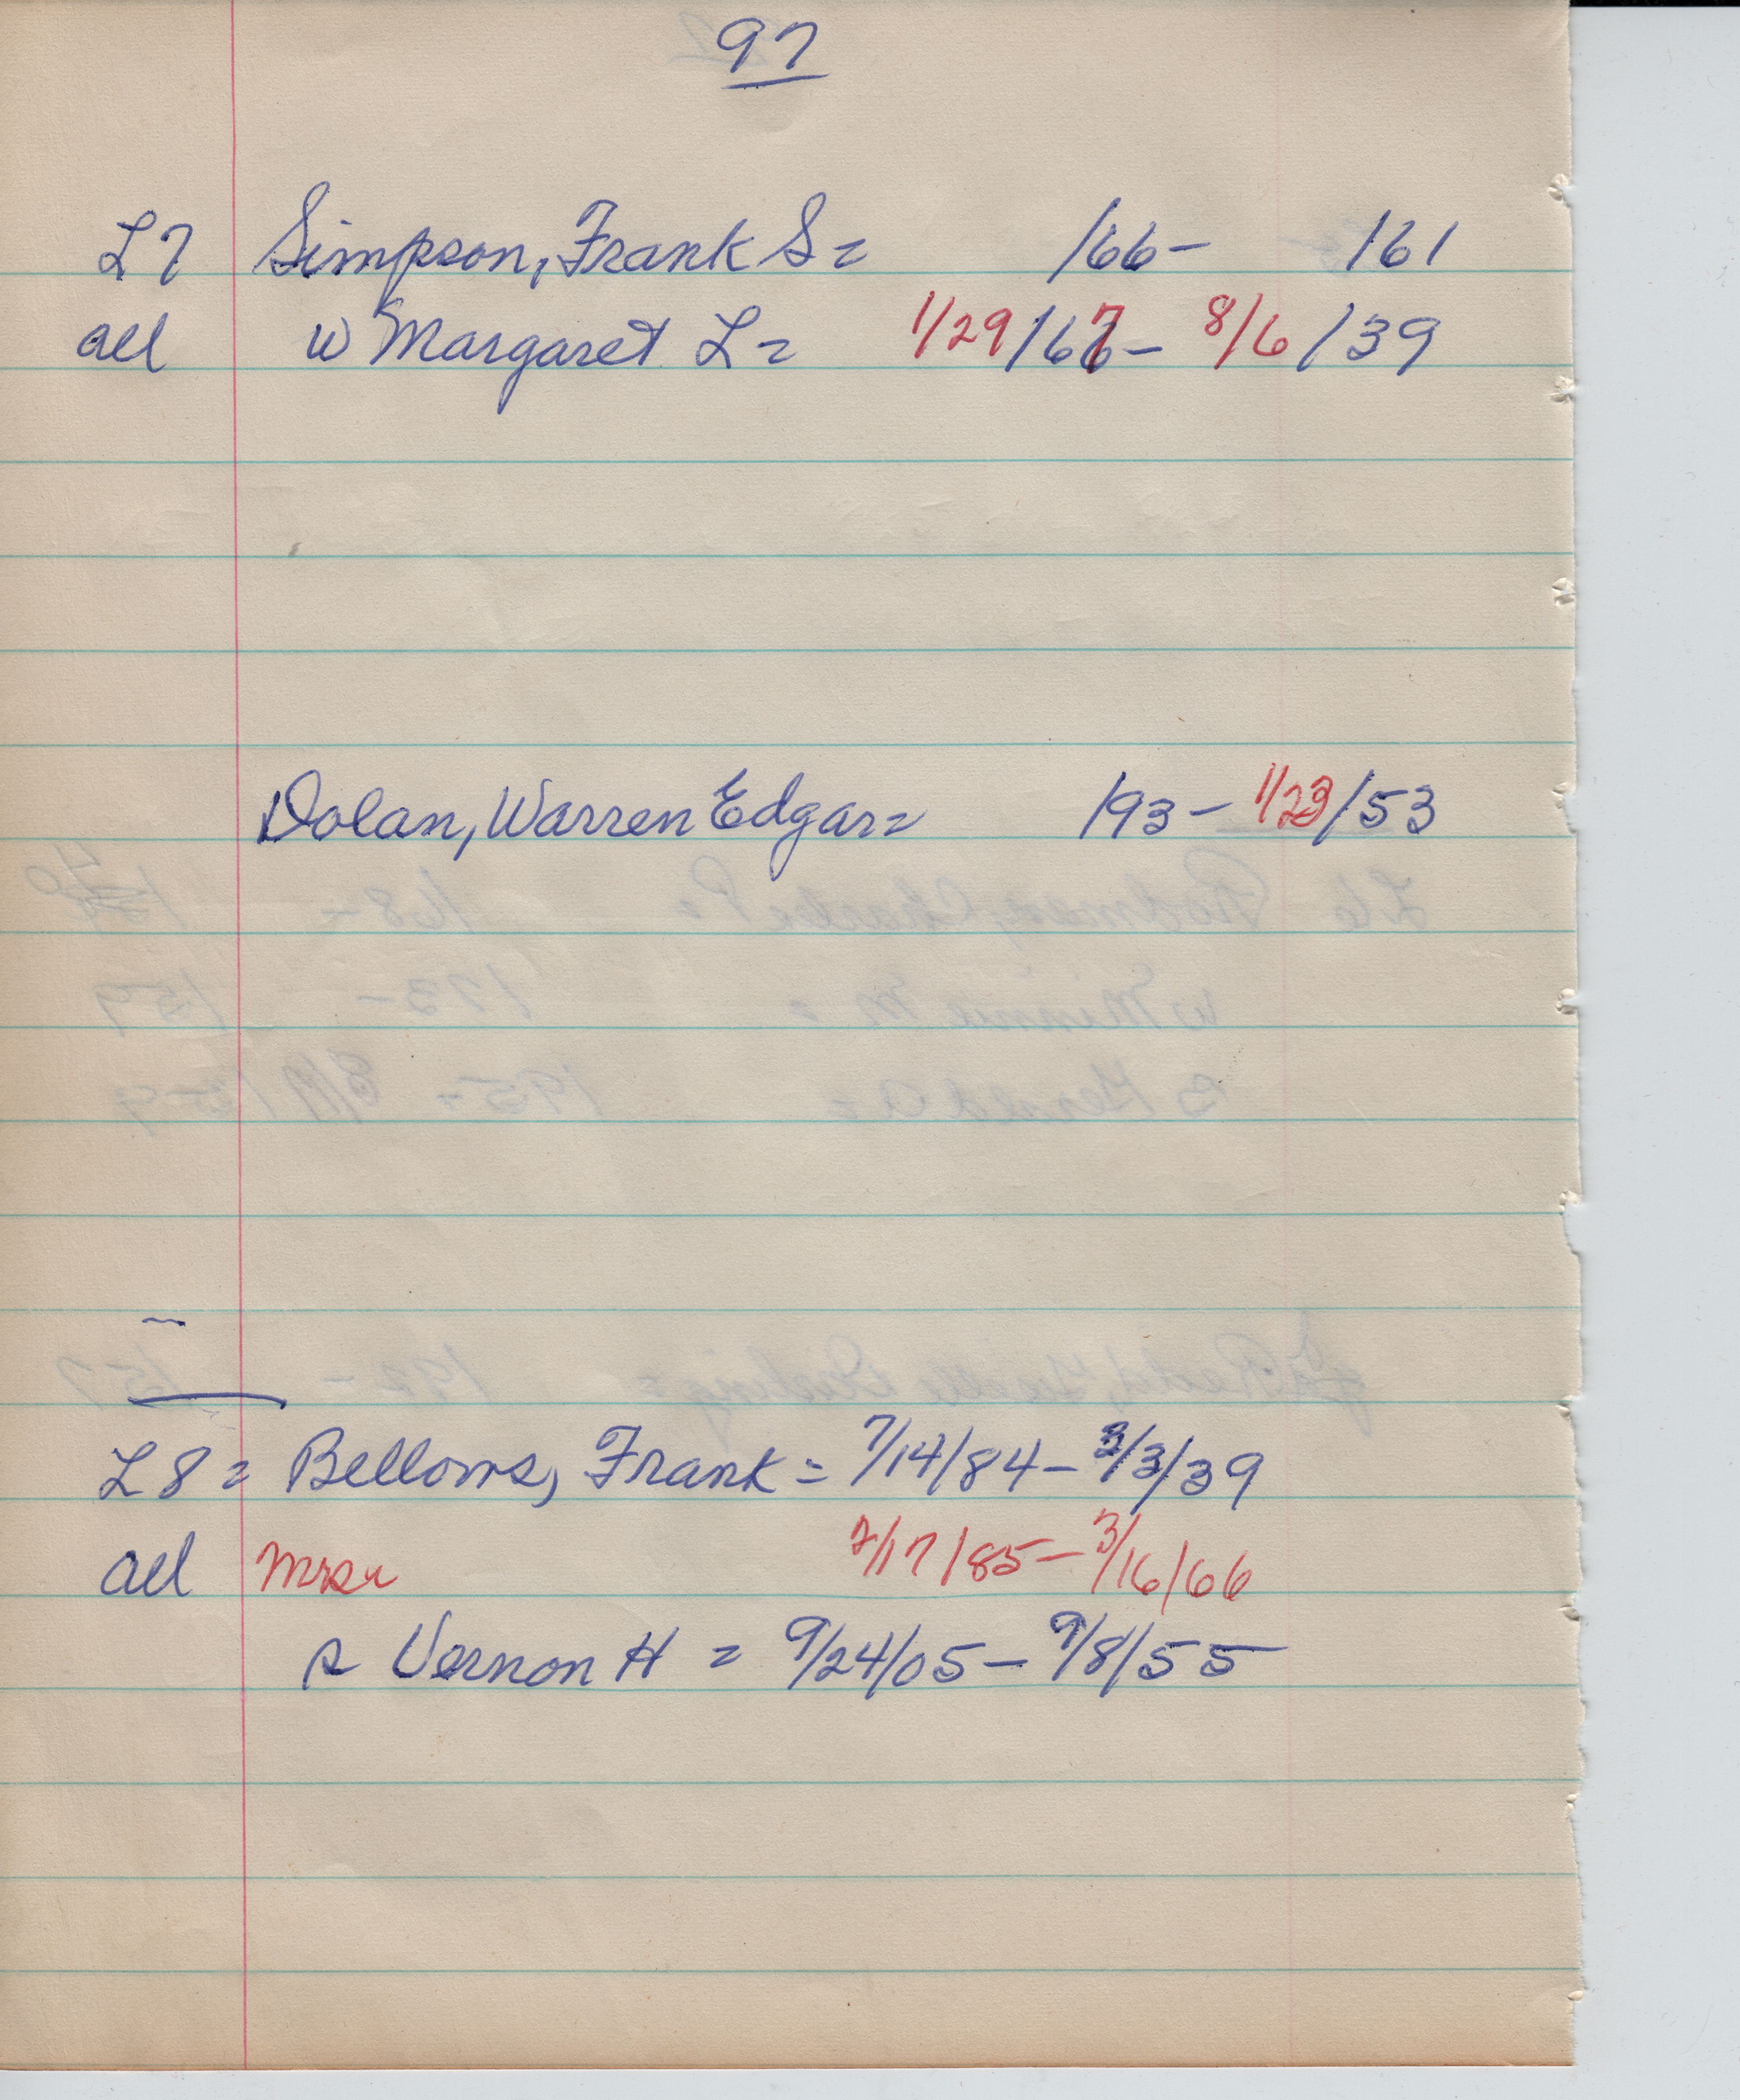 97
L7 Simpson, Frank S = /66 - /61
all w Margaret L = 1/29/67 - 8/6/39
Dolan, Warren Edgar = /93 - 1/23/53
L8 = Bellows, Frank = 7/14/84 - 3/3/39
all Mrs. 7/17/85 - 3/16/66
s Vernon H = 9/24/05 - 9/8/55